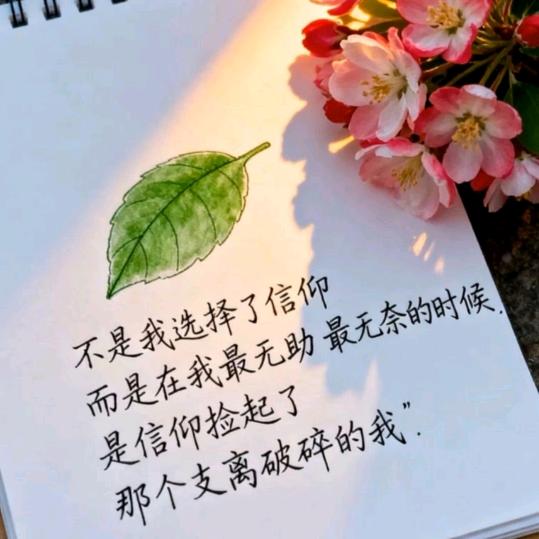 不是我选择了信仰
而是在我最无助 最无奈的时候.
是信仰捡起了
那个支离破碎的我”.